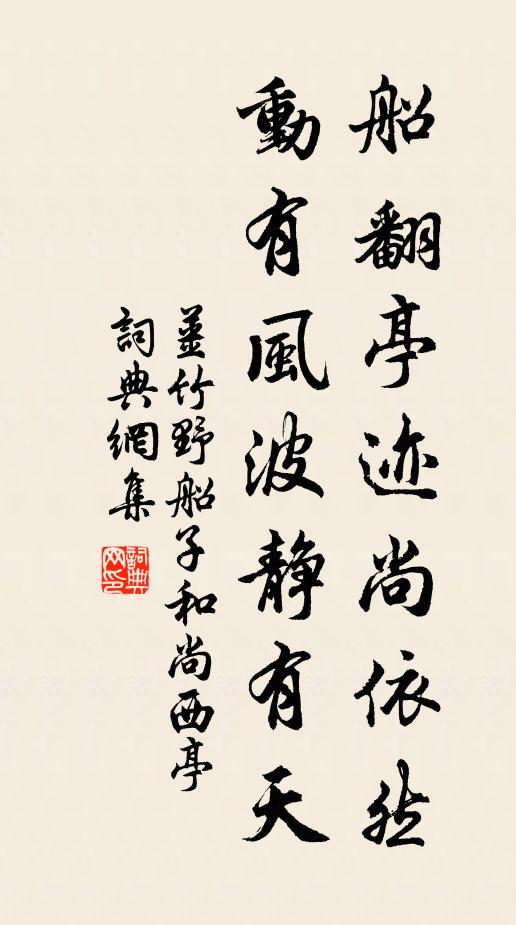 船翻亭迹尚依然
動有風波靜有天
姜竹野船子和尚西亭
詞典網集
詞典网印